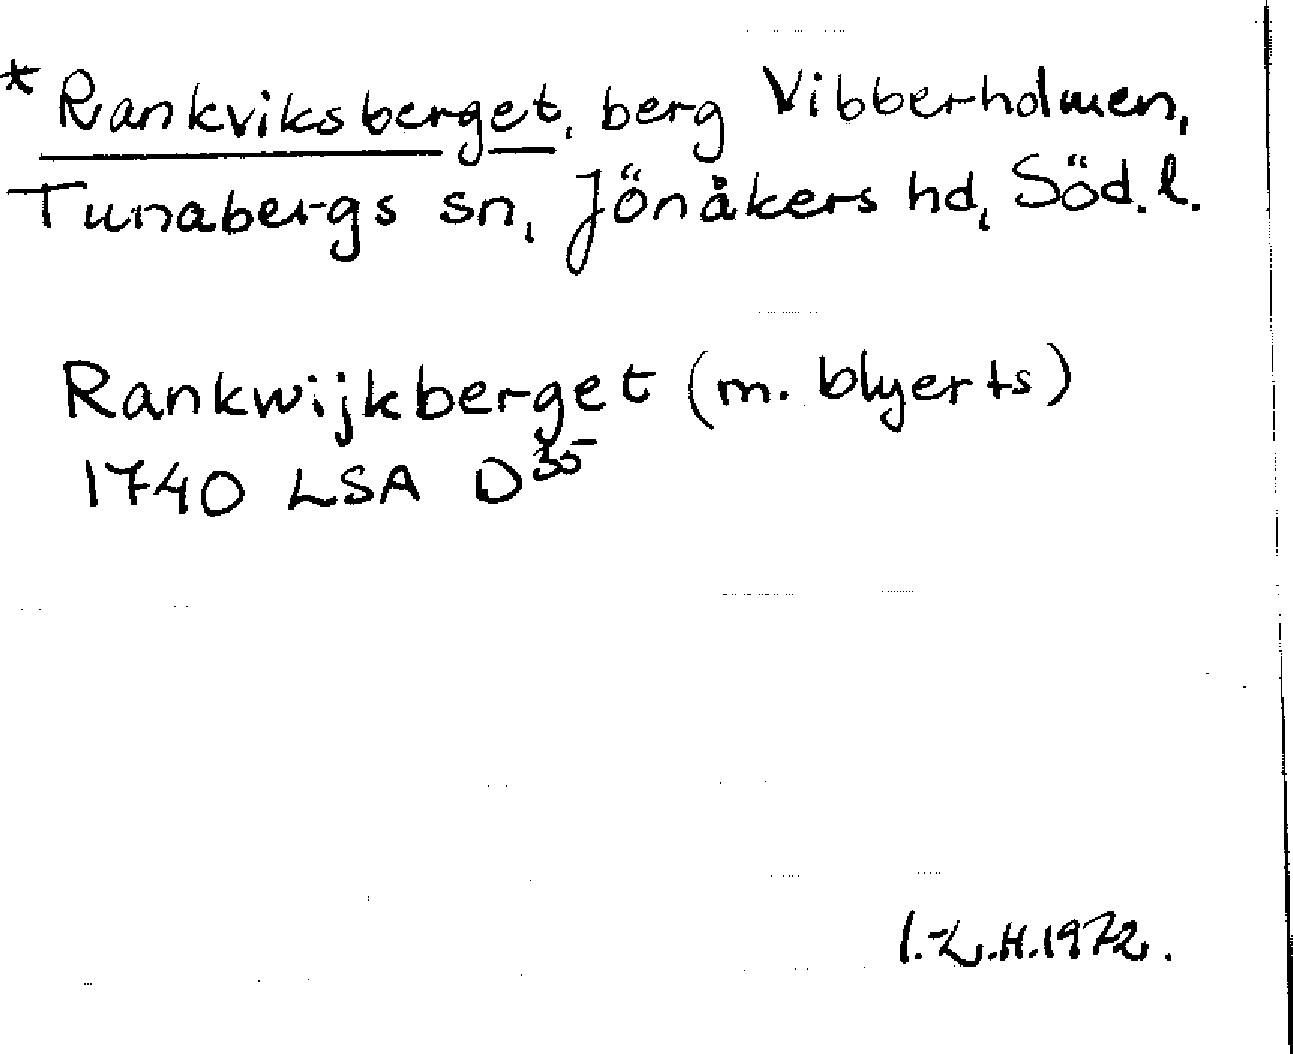 * Rankviksberget, berg Vibberholmen,
Tunabergs sn, Jönåkers hd, Söd. l.
Rankwijkberget (m. blyerts)
1740 LSA D35
I.-L.H.1972.